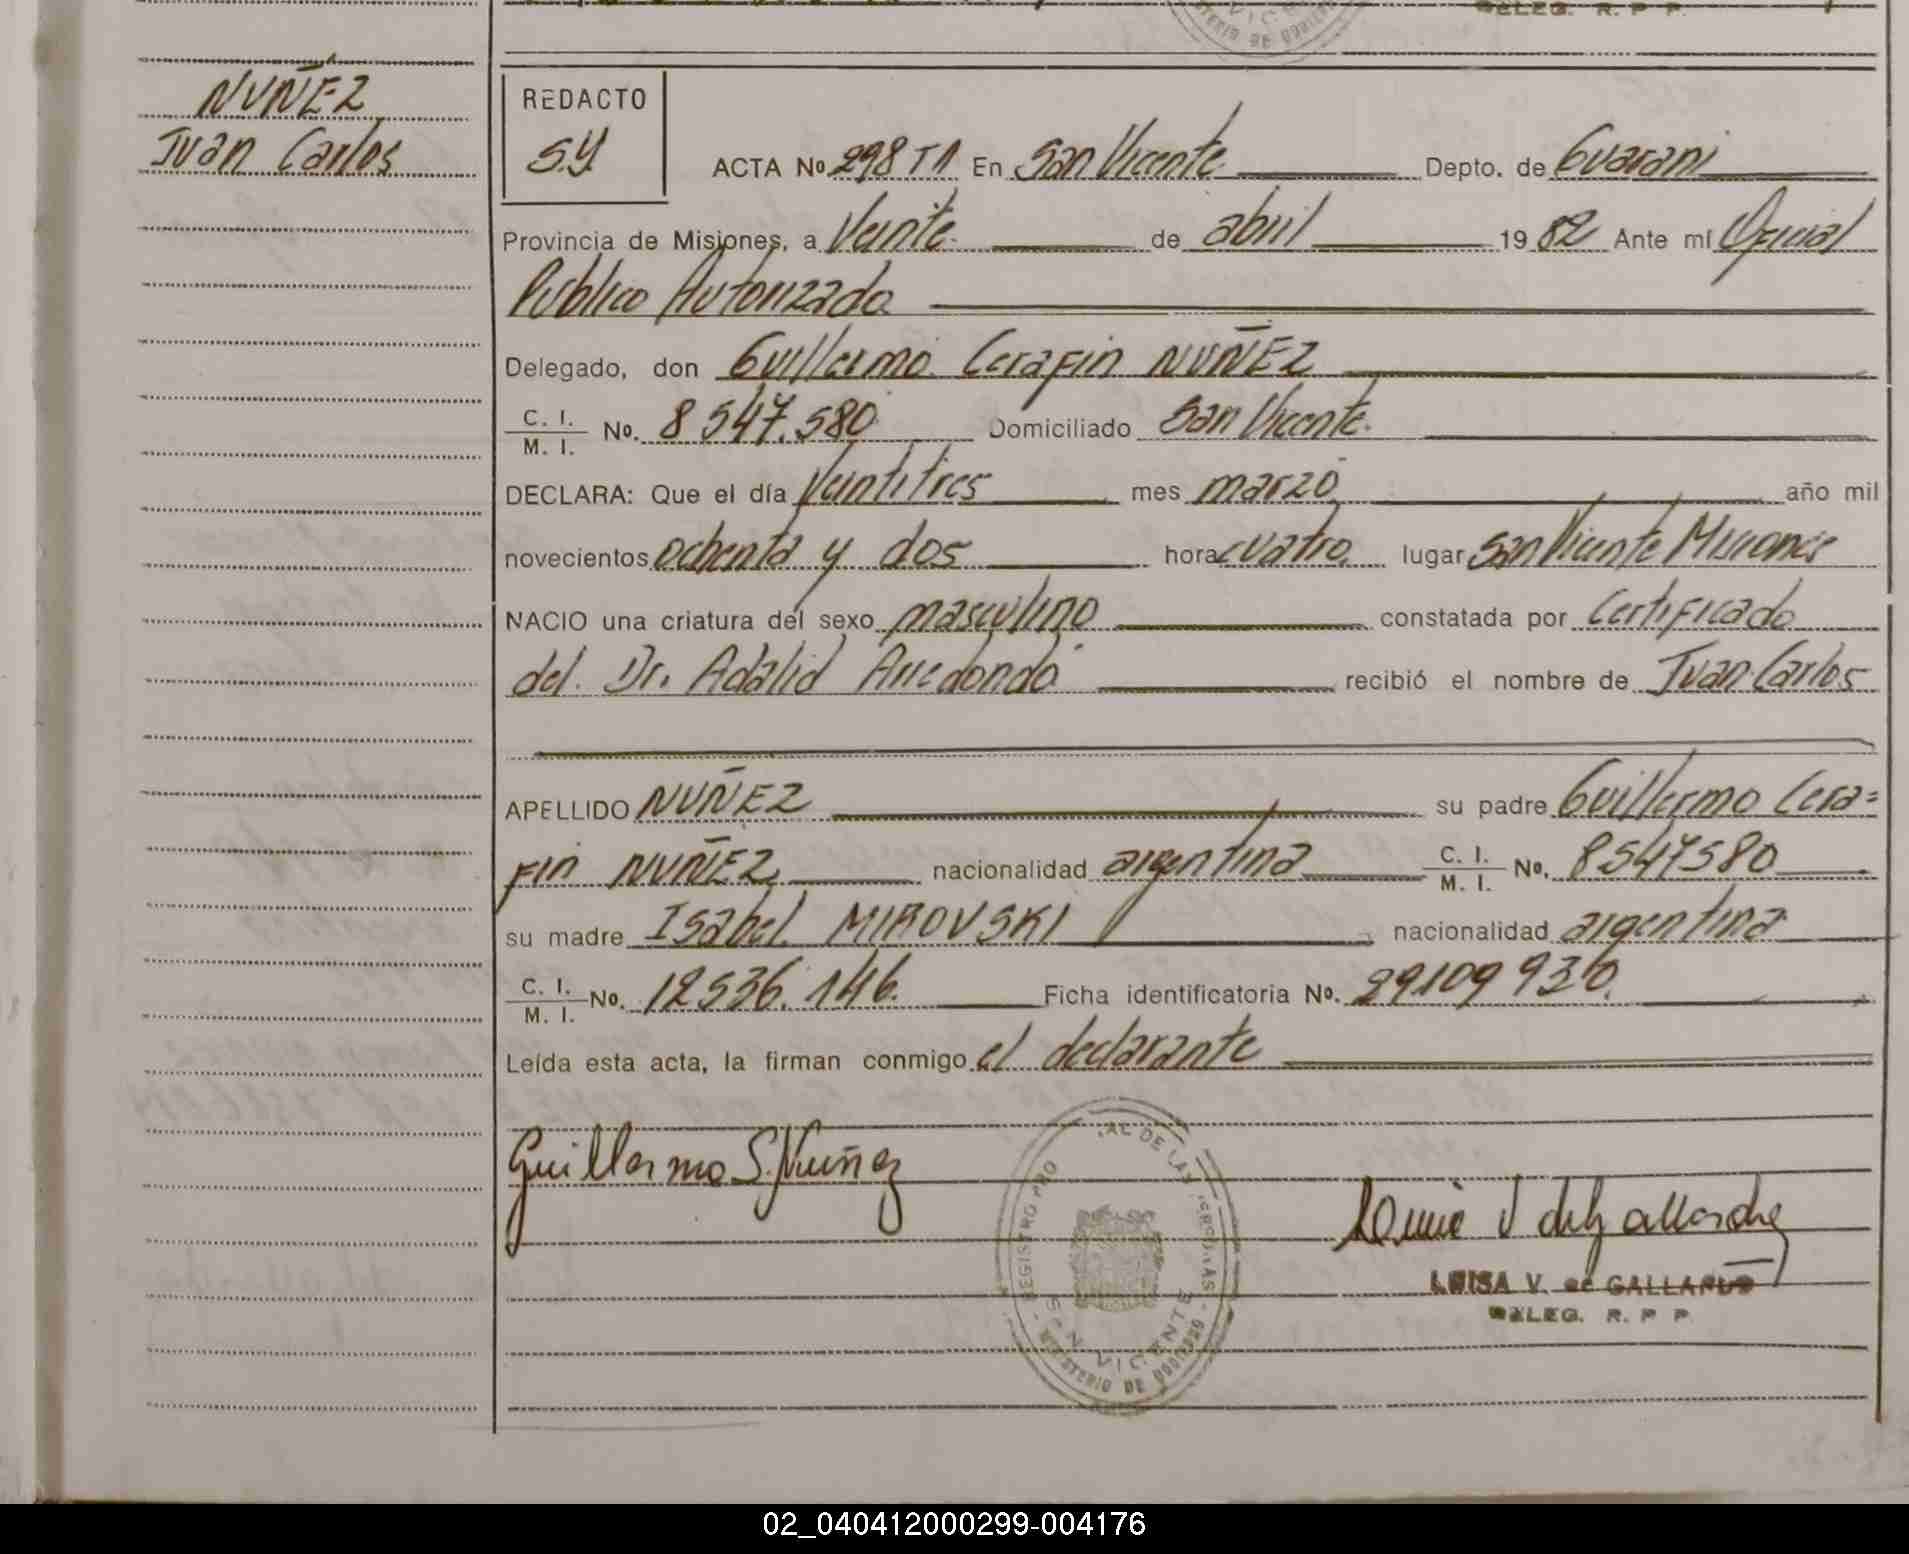 DELEG. R. P P.
NUÑEZ
Juan Carlos
REDACTO
S.Y.
ACTA No 298 T1 En San Vicente Depto. de Guarani
Provincia de Misiones, a Veinte de abril 1982 Ante mí Oficial
Publico Autorizado
Delegado, don Guillermo Cerafin NUÑEZ
C. I. / M. I. No. 8 547.580 Domiciliado San Vicente.
DECLARA: Que el día Veintitres mes marzo año mil
novecientos ochenta y dos hora cuatro. lugar San Vicente Misiones
NACIO una criatura del sexo masculino constatada por Certificado
del. Dr. Adalid Arredondo recibió el nombre de Juan Carlos
APELLIDO NUÑEZ su padre Guillermo Cera=
fin NUÑEZ nacionalidad argentina C. I. / M. I. No. 8547580
su madre Isabel MIROVSKI nacionalidad argentina
C. I. / M. I. No. 12536.146. Ficha identificatoria No. 29109930.
Leída esta acta, la firman conmigo el declarante
Guillermo S. Nuñez
REGISTRO PRO AL DE LAS PERSONAS
SAN VICENTE
MINISTERIO DE GOBIERNO
LUISA V. de GALLARDO
DELEG. R. P P
02_040412000299-004176